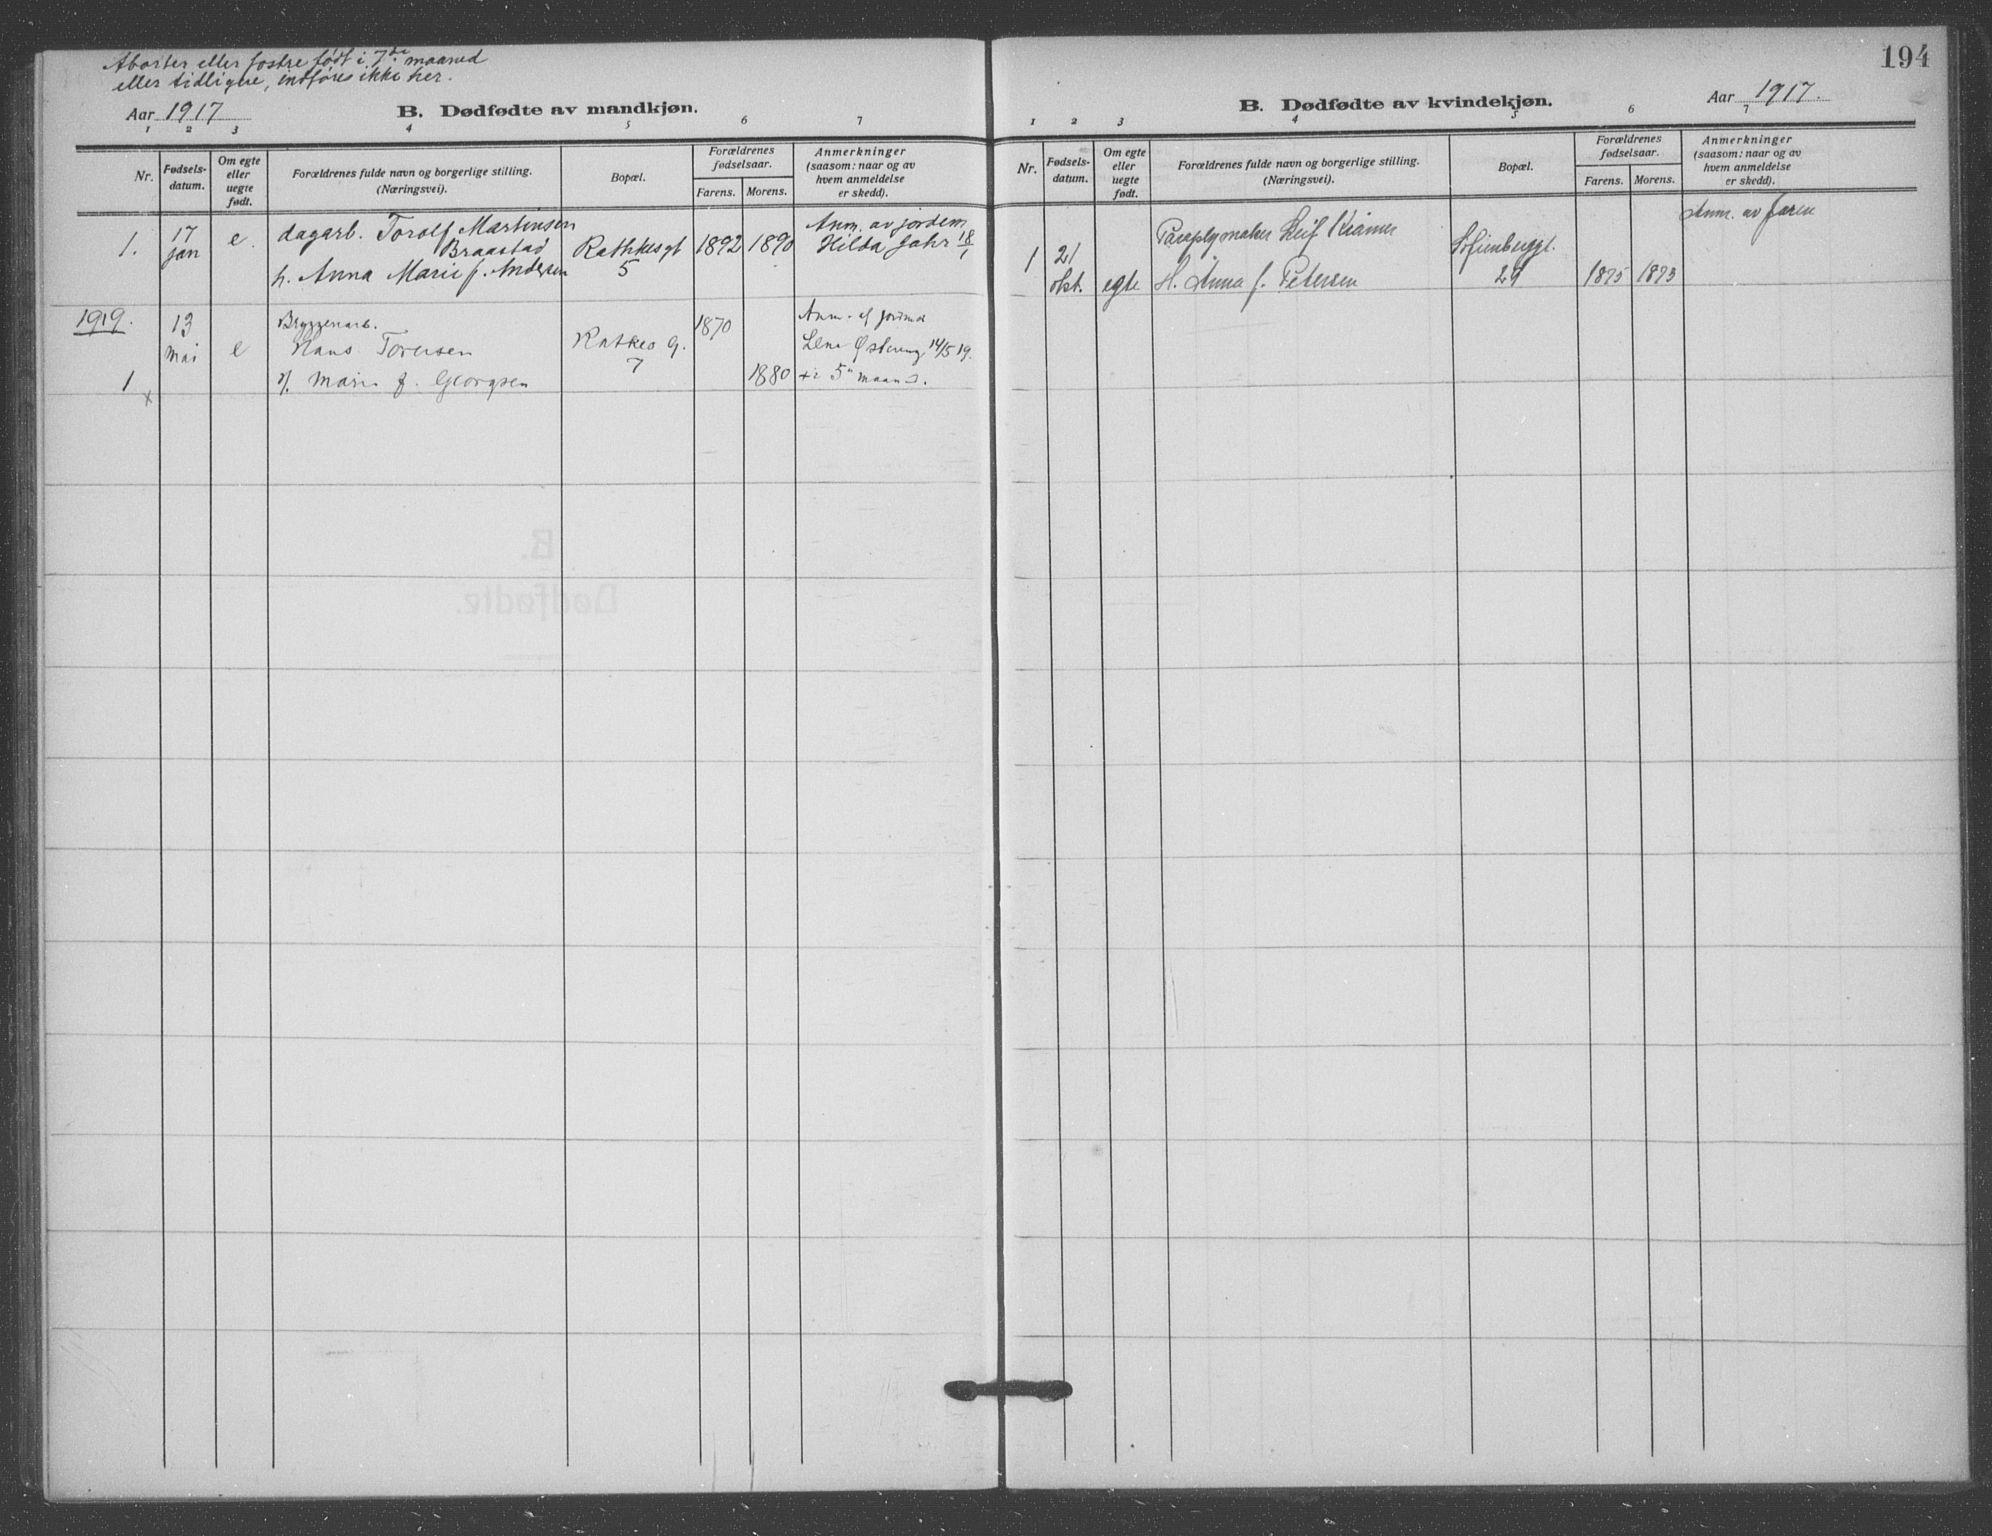 Aborter eller fostre født i 7de maaned
eller tidligere, indføres ikke her.
Aar 1917
B. Dødfødte av mandkjøn.
1 2 3 4 5 6 7
Nr.
Fødsels-
datum.
Om egte
eller
uegte
født.
Forældrenes fulde navn og borgerlige stilling.
(Næringsvei).
Bopæl.
Forældrenes
fødselsaar.
Farens. Morens.
Anmerkninger
(saasom: naar og av
hvem anmeldelse
er skedd).
1.
17
jan
e.
dagarb. Torolf Martinsen
Braastad
h. Anna Marie f. Andersen
Rathkesgt
5
1892 1890
Anm. av jordem
Hilda Jahr 18/1
1919.
1
13
mai
e
Bryggenarb.
Hans Toresen
h. Marie f. Georgsen
Ratkes g.
7
1870
1880
Anm. af jordmod
Lena 14/5 19.
5 maan
194
B. Dødfødte av kvindekjøn.
Aar 1917.
1 2 3 4 5 6 7
Nr.
Fødsels-
datum.
Om egte
eller
uegte
født.
Forældrenes fulde navn og borgerlige stilling.
(Næringsvei).
Bopæl.
Forældrenes
fødselsaar.
Farens. Morens.
Anmerkninger
(saasom: naar og av
hvem anmeldelse
er skedd).
1
21
okt.
egte
Paraplymaker Leif Kramer
H. Anna f. Petersen
Sofienberggt.
29
1875 1873
Anm. av faren
B.
Dødfødte.